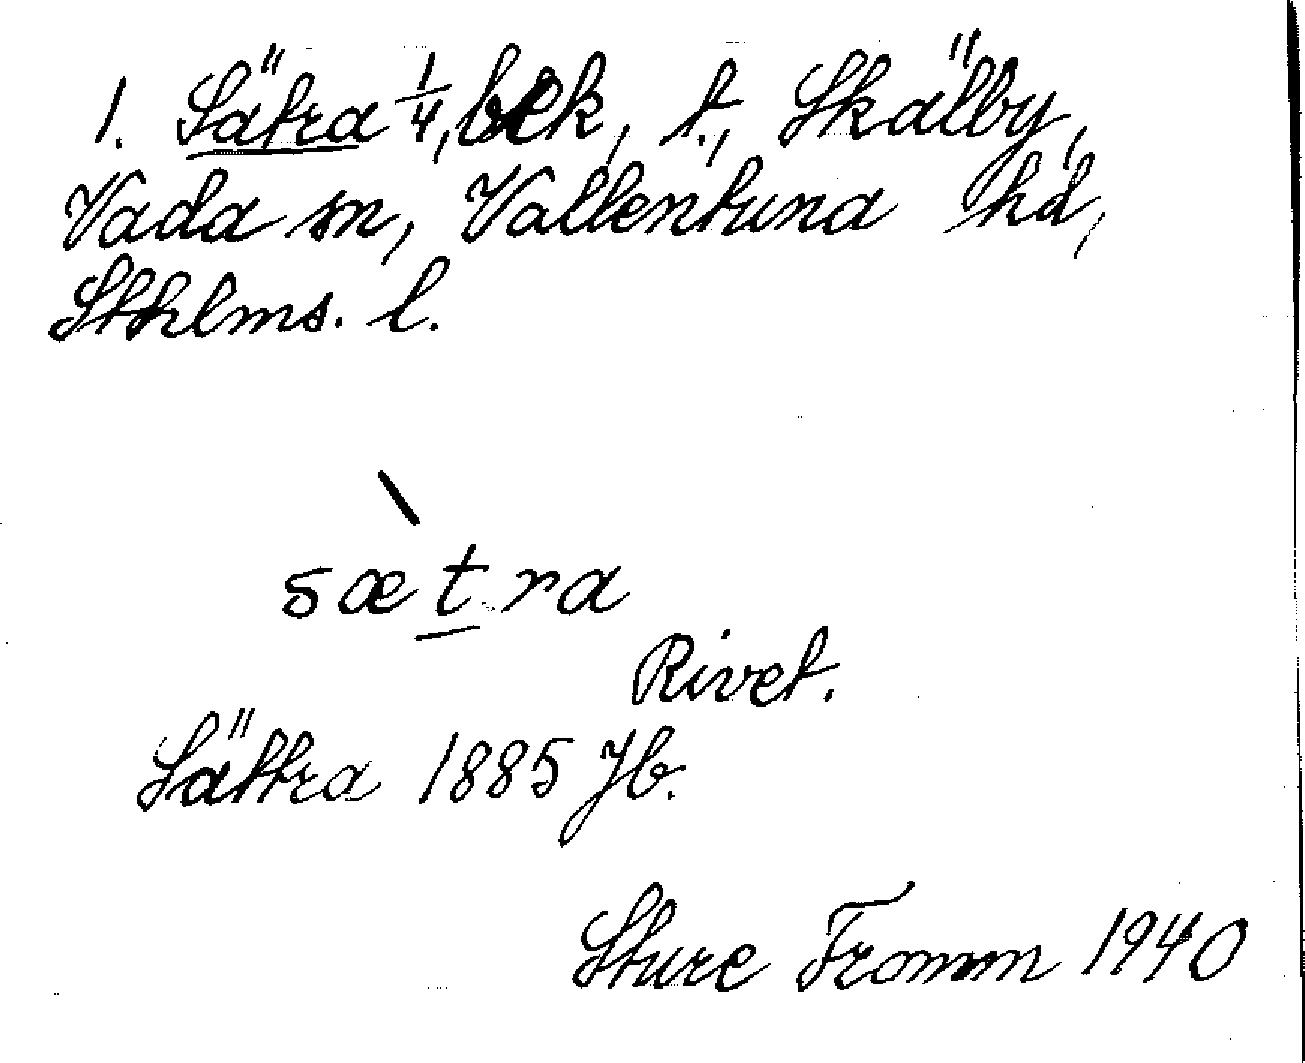 1. Sätra 1/4, bek, t., Skälby,
Vada sn, Vallentuna hd,
Sthlms. l.
sæ̀t̲ra
Rivet.
Sättra 1885 Jb.
Sture Fromm 1940